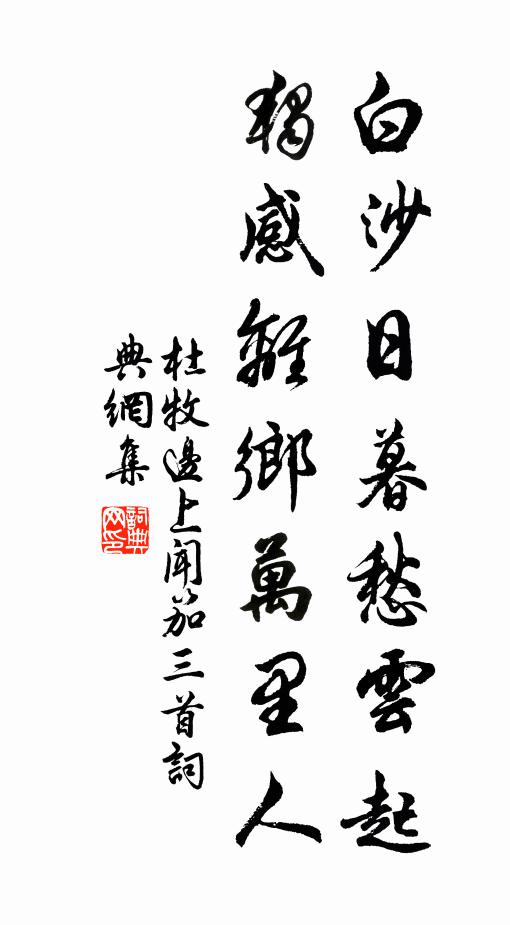 白沙日暮愁雲起
獨感離鄉萬里人
杜牧邊上聞笳三首詞
典網集
詞典网印